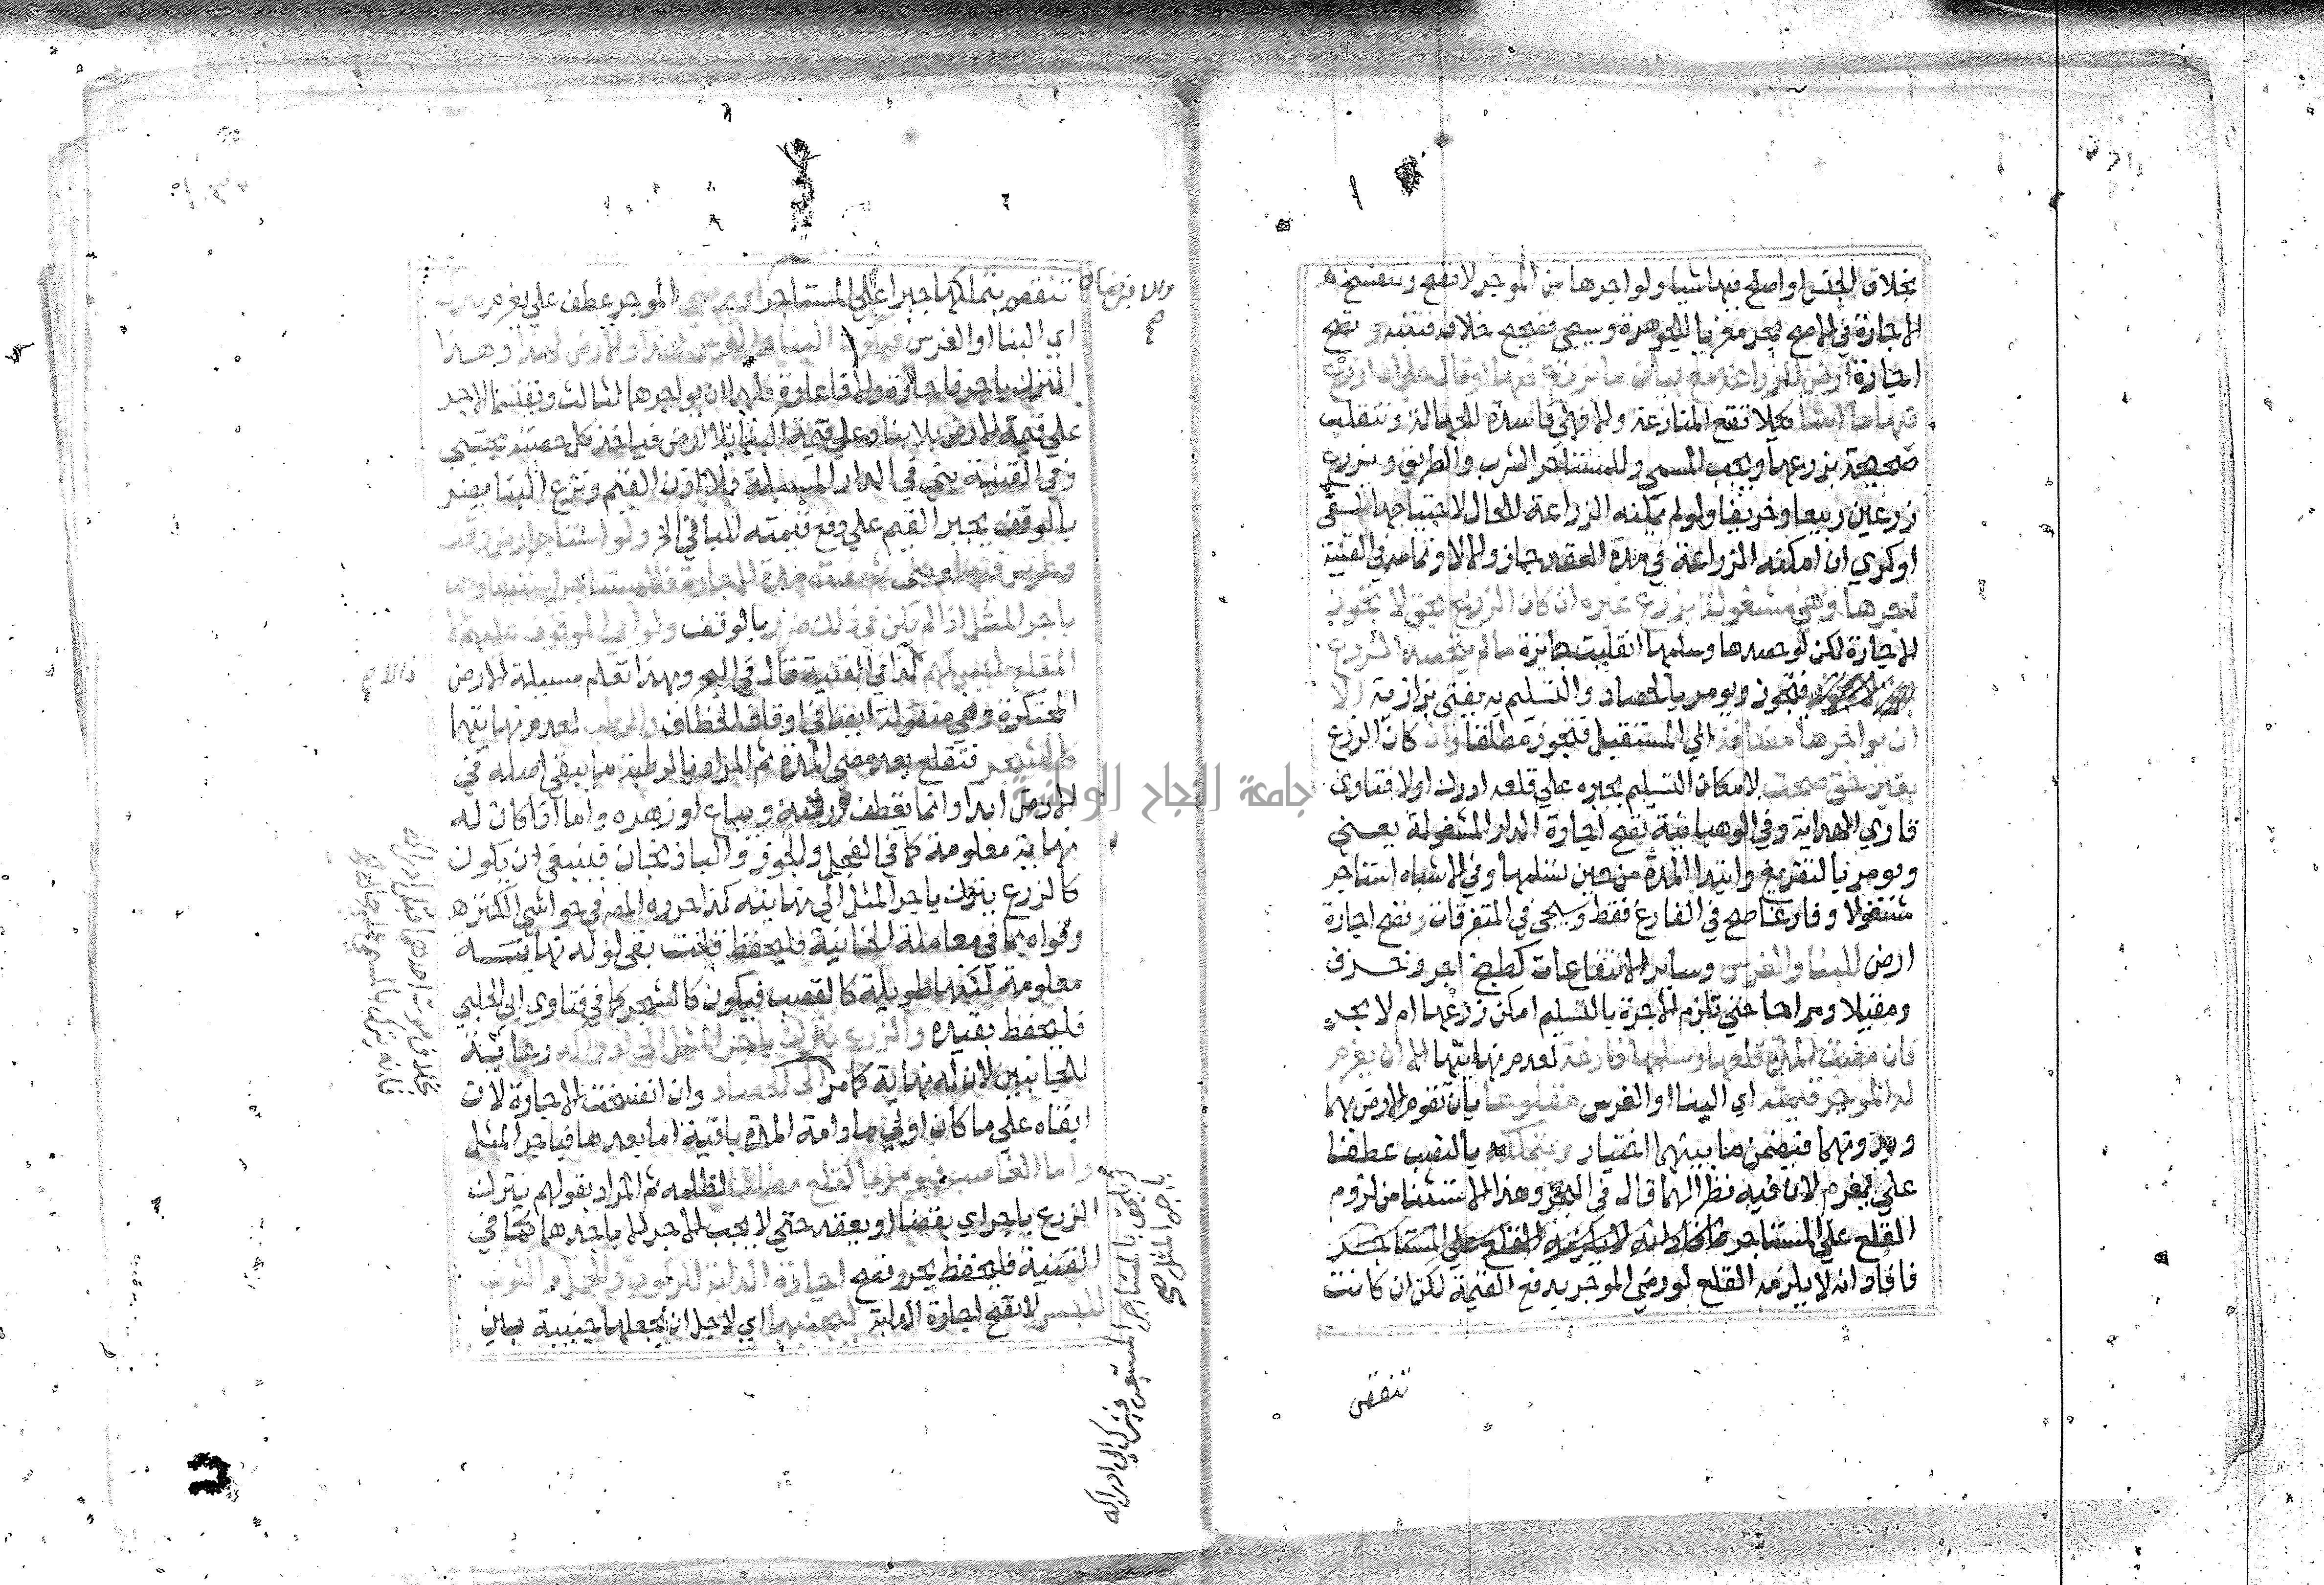 بخلاف الجنس او اصلح فيها شيا ولو اجرها من الموجر لا تصح وتنفسخ
الاجارة في الاصح بحر معزيا للجوهرة وسيجي تصحيح خلافه فتنبه و تصح
اجارة ارض للزراعة مع بيان ما يزرع فيها او قال علي ان ازرع
فيها ما اشا كيلا تقع المنازعة والا فهي فاسدة للجهالة وتنقلب
صحيحة بزرعها ويجب المسمى وللمستاجر الشرب والطريق ويزرع
زرعين ربيعا وخريفا ولو لم يمكنه الزراعة للحال لاحتياجها لسقي
او كري ان امكنه الزراعة في مدة العقد جاز والا لا وتمامه في القنية
اجرها وهي مشغولة بزرع غيره ان كان الزرع بحق لا تجوز
الاجارة لكن لو حصده وسلمها انقلبت جايزة ما لم يستحصد الزرع
فتجوز ويومر بالحصاد والتسليم به يفتى بزازية الا
ان يواجرها مضافة الي المستقبل فتجوز مطلقا وان كان الزرع
بغير حق صحت لامكان التسليم بجبره علي قلعه ادرك اولا فتاوى
قاري الهداية وفي الوهبانية تصح اجارة الدار المشغولة يعني
ويومر بالتفريغ وابتدا المدة من حين تسلمها وفي الاشباه استاجر
مشغولا وفارغا صح في الفارغ فقط وسيجي في المتفرقات وتصح اجارة
ارض للبنا والغرس وساير الانتفاعات كطبخ اجر وخزف
ومقيلا ومراحا حتي تلزم الاجرة بالتسليم امكن زرعها ام لا بحر
فان مضت المدة قلعها وسلمها فارغة لعدم نهايتها الا ان يغرم
له الموجر قيمته اي البنا او الغرس مقلوعا بان تقوم الارض بهما
وبدونهما فيضمن ما بينهما اختيار ويتملكه بالنصب عطفا
علي يغرم لان فيه نظرا لهما قال في البحر وهذا الاستثنا من لزوم
القلع علي المستاجر
فافاد انه لا يلزمه القلع لو رضي الموجر بدفع القيمة لكن ان كانت
تنقص
تنقص بتملكها جبرا علي المستاجر او يرضى الموجر عطف علي يغرم
والا فبرضاه صح
اي البنا او الغرس فيكون البنا والغرس لهذا والارض لهذا وهذا
الترك باجر فاجارة والا فاعارة فلهما ان يواجرهما لثالث ويقتسما الاجر
علي قيمة الارض بلا بنا وعلي قيمة البنا بلا ارض فياخذ كل حصته مجتبى
وفي القنية بنى في الدار المسبلة بلا اذن القيم ونزع البنا يضر
بالوقف يجبر القيم علي دفع قيمته للباني الخ ولو استاجر ارض وقف
وغرس فيها وبنى ثم مضت مدة الاجارة فللمستاجر استبقاوها
باجر المثل اذا لم يكن في ذلك ضرر بالوقف ولو ابى الموقوف عليهم الا
القلع ليس لهم كذا في القنية قال في البحر وبهذا تعلم مسيلة الارض
المحتكرة وهي منقولة ايضا في اوقاف الخصاف والرطبة لعدم نهايتها
كالشجر فتقلع بعد مضي المدة ثم المراد بالرطبة ما يبقى اصله في
الارض ابدا وانما يقطف ورقه ويباع او زهره واما اذا كان له
نهاية معلومة كما في الفجل والجزر والباذنجان فينبغي ان يكون
كالزرع يترك باجر المثل الي نهايته كذا حرره المص في حواشي الكنز
وقواه بما في معاملة الخانية فليحفظ قلت بقي لو له نهاية
معلومة لكنها طويلة كالقصب فيكون كالشجر كما في فتاوي ابن الحلبي
فليحفظ بقيده والزرع يترك باجر المثل الي ادراكه رعاية
للجانبين لان له نهاية كما مر
خلاف موت احدهما قبل ادراكه
فانه يترك بالمسمى علي حاله الي الحصاد وان انفسخت الاجارة لان
ابقاه علي ما كان اولي ما دامة المدة باقية اما بعدها فباجر المثل
ويلحق بالمستاجر المستعير فيترك الي ادراكه
باجر المثل صح
واما الغاصب فيومر بالقلع مطلقا لظلمه ثم المراد بقولهم يترك
الزرع باجر اي بقضا او بعقد حتي لا يجب الاجر الا باحدهما كما في
القنية فليحفظ بحر وتصح اجارة الدابة للركوب والحمل والثوب
للبس لا تصح اجارة الدابة ليجنبها اي لاجل ان يجعلها جنيبة بين
جامعة النجاح الوطنية